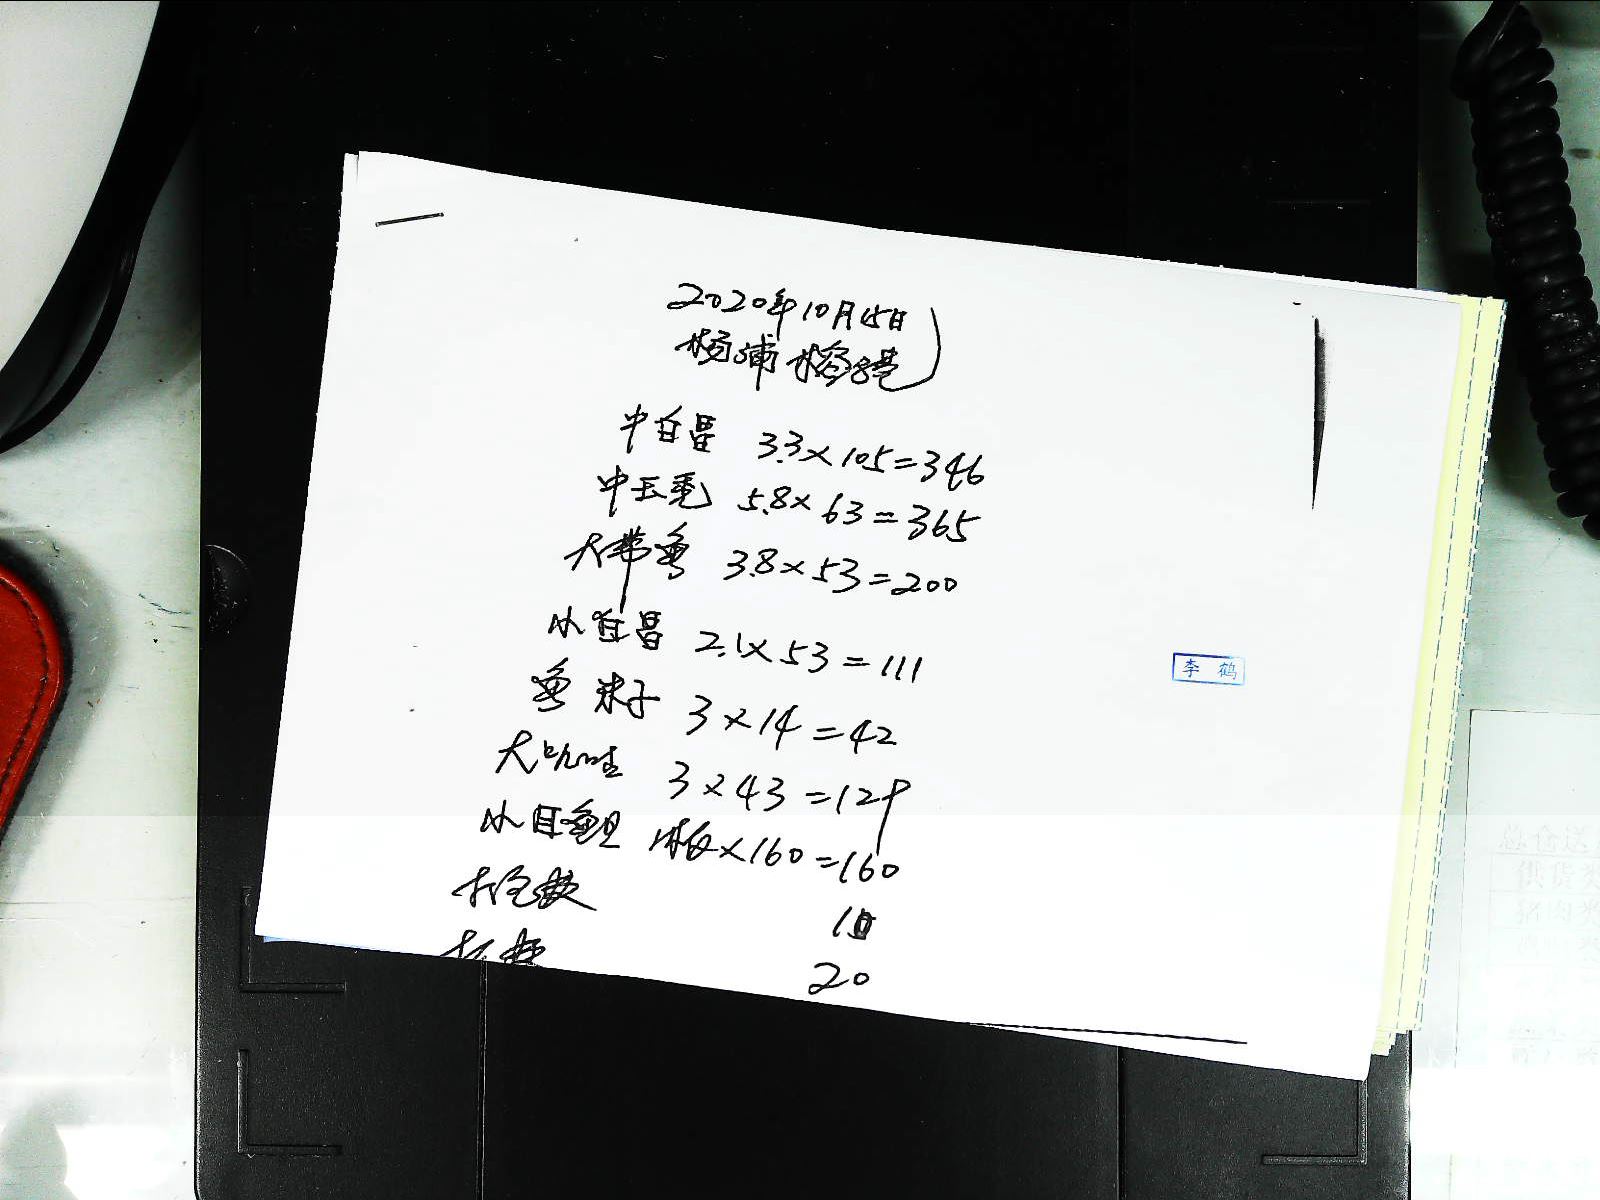 2020年10月15日
杨浦榕港
中白昌 3.3×105=346
中玉秃 5.8×63=365
大带鱼 3.8×53=200
小白昌 2.1×53=111
鱼 子 3×14=42
大 3×43=129
小目鱼旦 1板×160=160
10
20
李鹤